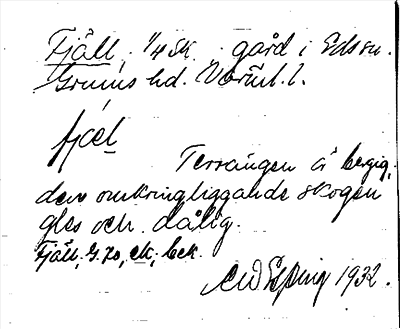 Fjäll, 1/4 sk. gård i Edssn.
Grums hd. Värml. l.
fjœl
Terrängen är bergig,
den omkringliggande skogen
gles och dålig.
Fjäll, G. 70, ek, bek.
1932.